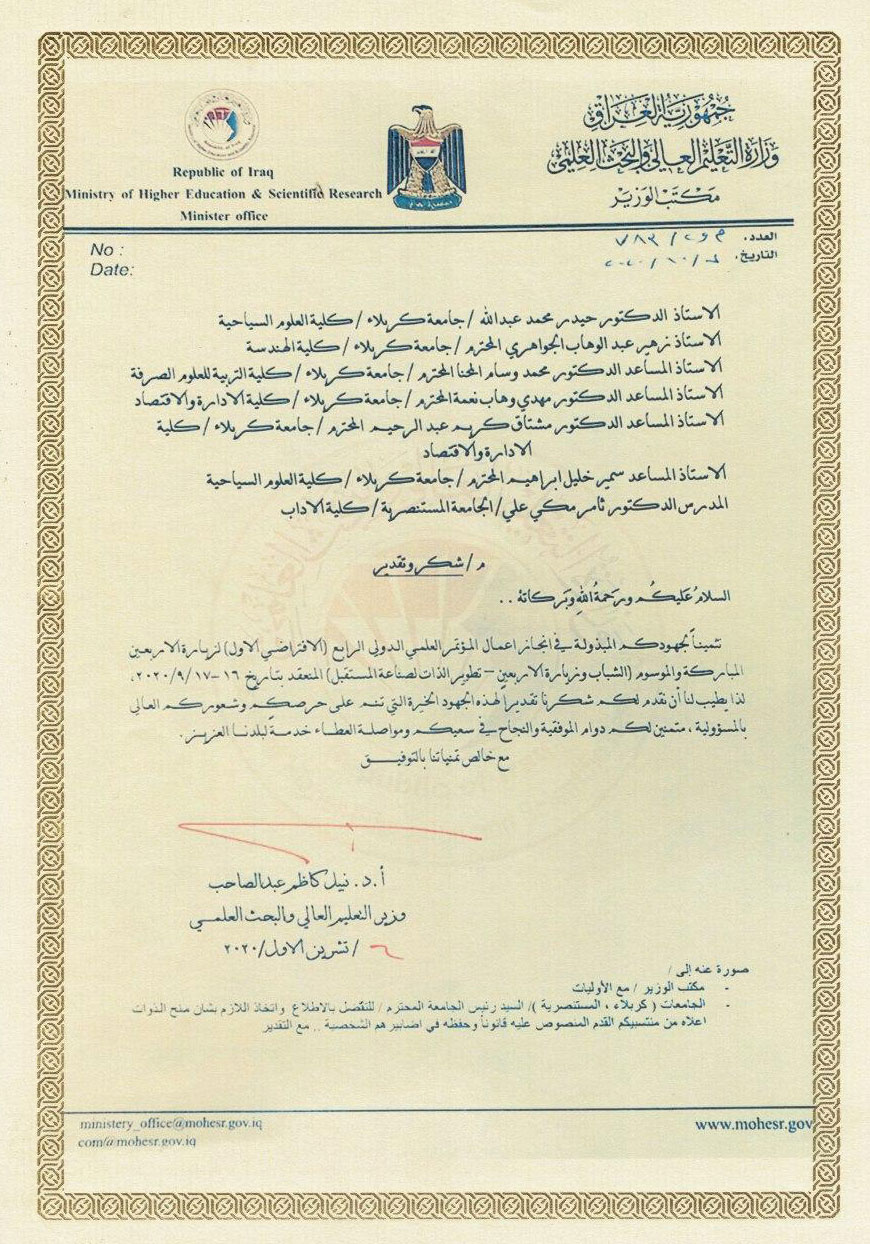 جمهورية العراق
وزارة التعليم العالي والبحث العلمي
مكتب الوزير
Republic of Iraq
Ministry of Higher Education & Scientific Research
Minister office
No :
Date:
العدد. م و ٥ / ٧٨٣
التاريخ. / ١٠ / ٢٠٢٠
الاستاذ الدكتور حيدر محمد عبدالله / جامعة كربلاء / كلية العلوم السياحية
الاستاذ زهير عبد الوهاب الجواهري المحترم / جامعة كربلاء / كلية الهندسة
الاستاذ المساعد الدكتور محمد وسام المحنا المحترم / جامعة كربلاء / كلية التربية للعلوم الصرفة
الاستاذ المساعد الدكتور مهدي وهاب نعمة المحترم / جامعة كربلاء / كلية الادارة والاقتصاد
الاستاذ المساعد الدكتور مشتاق كريم عبد الرحيم المحترم / جامعة كربلاء / كلية
الادارة والاقتصاد
الاستاذ المساعد سمير خليل ابراهيم المحترم / جامعة كربلاء / كلية العلوم السياحية
المدرس الدكتور ثامر مكي علي / الجامعة المستنصرية / كلية الاداب
م / شكر وتقدير
السلامُ عَليكُم ورَحمةُ اللهِ وبَركاتهُ ..
تثميناً لجهودكم المبذولة في انجاز اعمال المؤتمر العلمي الدولي الرابع (الافتراضي الاول) لزيارة الاربعين
المباركة والموسوم (الشباب وزيارة الاربعين – تطوير الذات لصناعة المستقبل) المنعقد بتاريخ ١٦-٢٠٢٠/٩/١٧،
لذا يطيب لنا أن نقدم لكم شكرنا تقديراً لهذه الجهود الخيرة التي تنم على حرصكم وشعوركم العالي
بالمسؤولية ، متمنين لكم دوام الموفقية والنجاح في سعيكم ومواصلة العطاء خدمة لبلدنا العزيز.
مع خالص تمنياتنا بالتوفيــق
أ. د. نبيل كاظم عبدالصاحب
وزير التعليم العالي والبحث العلمــي
/ تشرين الاول/ ٢٠٢٠
صورة عنه إلى /
- مكتب الوزير / مع الأوليات
- الجامعات ( كربلاء ، المستنصرية )/ السيد رئيس الجامعة المحترم / للتفضل بالاطلاع واتخاذ اللازم بشان منح الذوات
اعلاه من منتسبيكم القدم المنصوص عليه قانوناً وحفظه في اضابير هم الشخصية .. مع التقدير
ministery_office@mohesr.gov.iq
com@mohesr.gov.iq
www.mohesr.gov